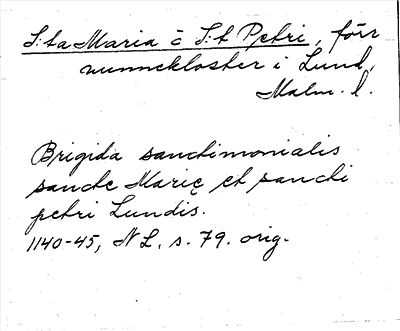 S:ta Maria o S:t Petri, förr
nunnekloster i Lund,
Malm. l.
Brigida sanctimonialis
sancte Marię et sancti
petri Lundis.
1140-45, NL. s. 79. orig.